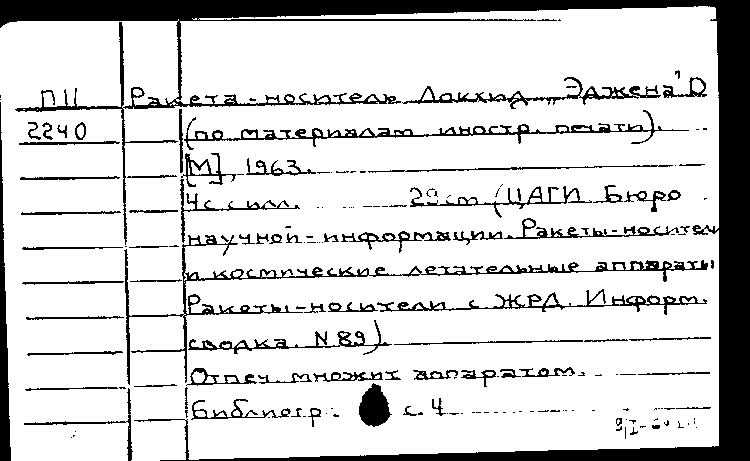 П11 Ракета-носитель Локхид „Эджена" D
2240 (по материалам иностр. печати).
[М], 1963.
4с с илл. 29 cm (ЦАГИ Бюро
научной-информации. Ракеты-носители
и космические летательные аппараты
Ракеты-носители с ЖРД. Информ.
сводка. N 89).
Отпеч. множит аппаратом.
Библиогр. с. 4